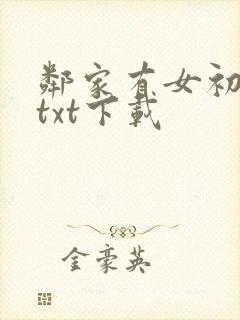 鄰家有女初
txt下載
金豪英